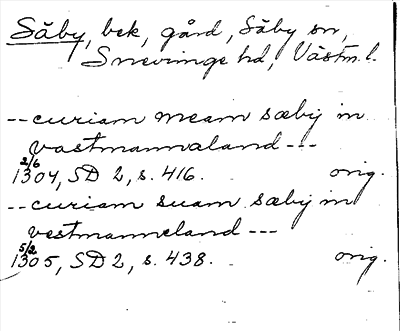 Säby, bek, gård, Säby sn,
Snevinge hd, Västm. l.
--curiam meam sæby in
vastmannaland---
2/6
1304, SD 2, s. 416. orig.
--curiam suam sæby in
vestmanneland---
5/2
1305, SD 2, s. 438. orig.